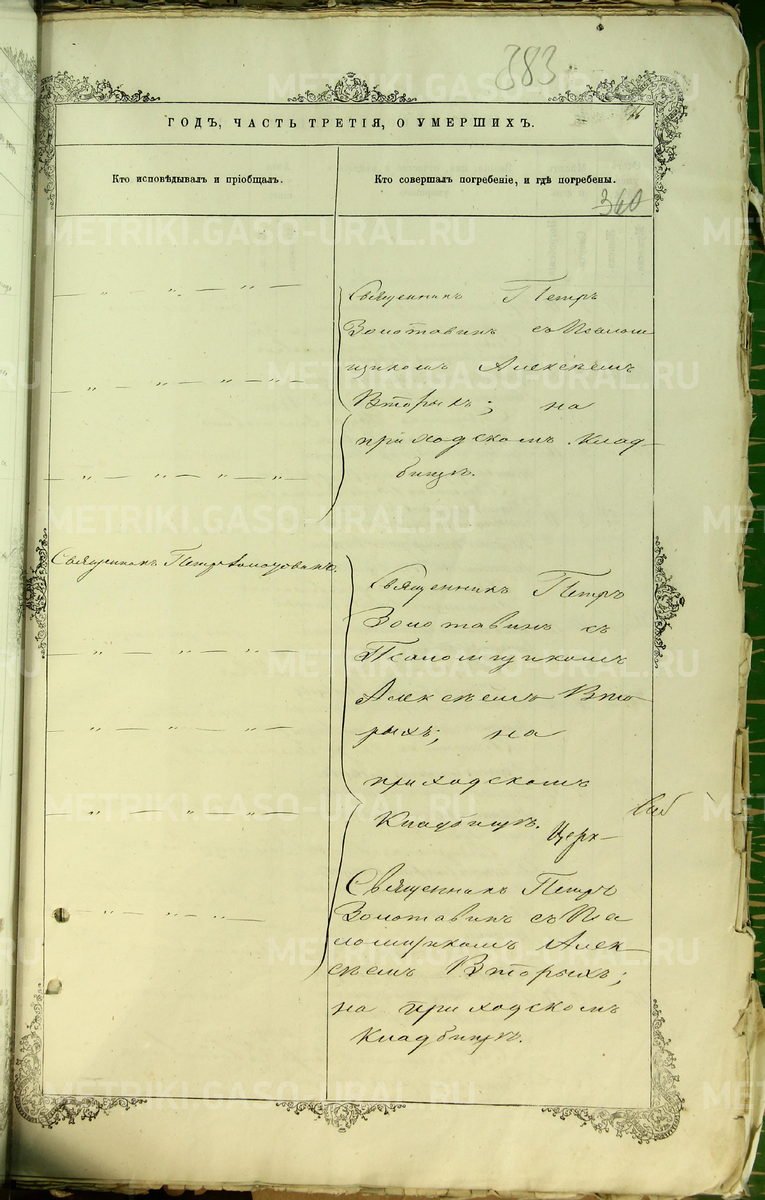 383
ГОДЪ, ЧАСТЬ ТРЕТІЯ, О УМЕРШИХЪ.
Кто исповѣдывалъ и пріобщалъ.
Кто совершалъ погребеніе, и гдѣ погребены.
360
— „ — „ — „ — „ —
— „ — „ — „ — „ —
— „ — „ — „ — „ —
Священникъ Петръ
Золотавинъ съ Псалом
щикомъ Алексѣемъ
Вторыхъ; на
приходскомъ клад-
бищѣ.
Священникъ Петръ Золотавинъ.
— „ — „ — „ — „ —
— „ — „ — „ — „ —
— „ — „ — „ — „ —
— „ — „ — „ — „ —
Священникъ Петръ
Золотавинъ съ
Псаломщикомъ
Алексѣемъ Вто
рыхъ; на
приходскомъ
Кладбищѣ.
Церк-
Священникъ Петръ
Золотавинъ съ Пса
ломщикомъ Алек-
сѣемъ Вторыхъ;
на приходскомъ
кладбищѣ.
METRIKI.GASO-URAL.RU